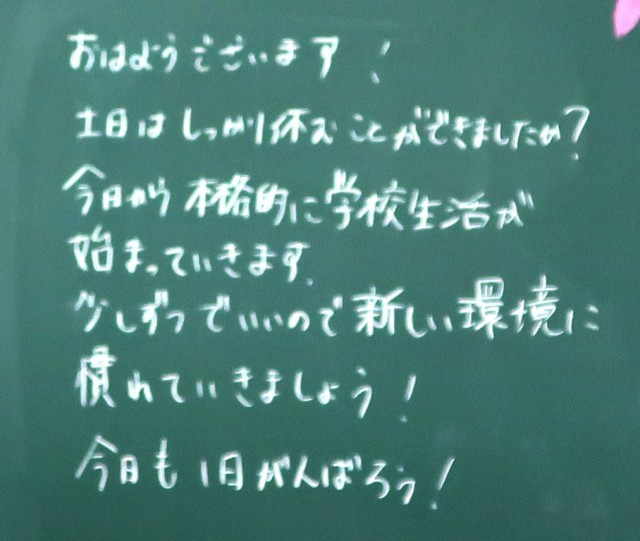 おはようございます!
土日はしっかり休むことができましたか?
今日から本格的に学校生活が
始まっていきます.
少しずつでいいので新しい環境に
慣れていきましょう!
今日も1日がんばろう!